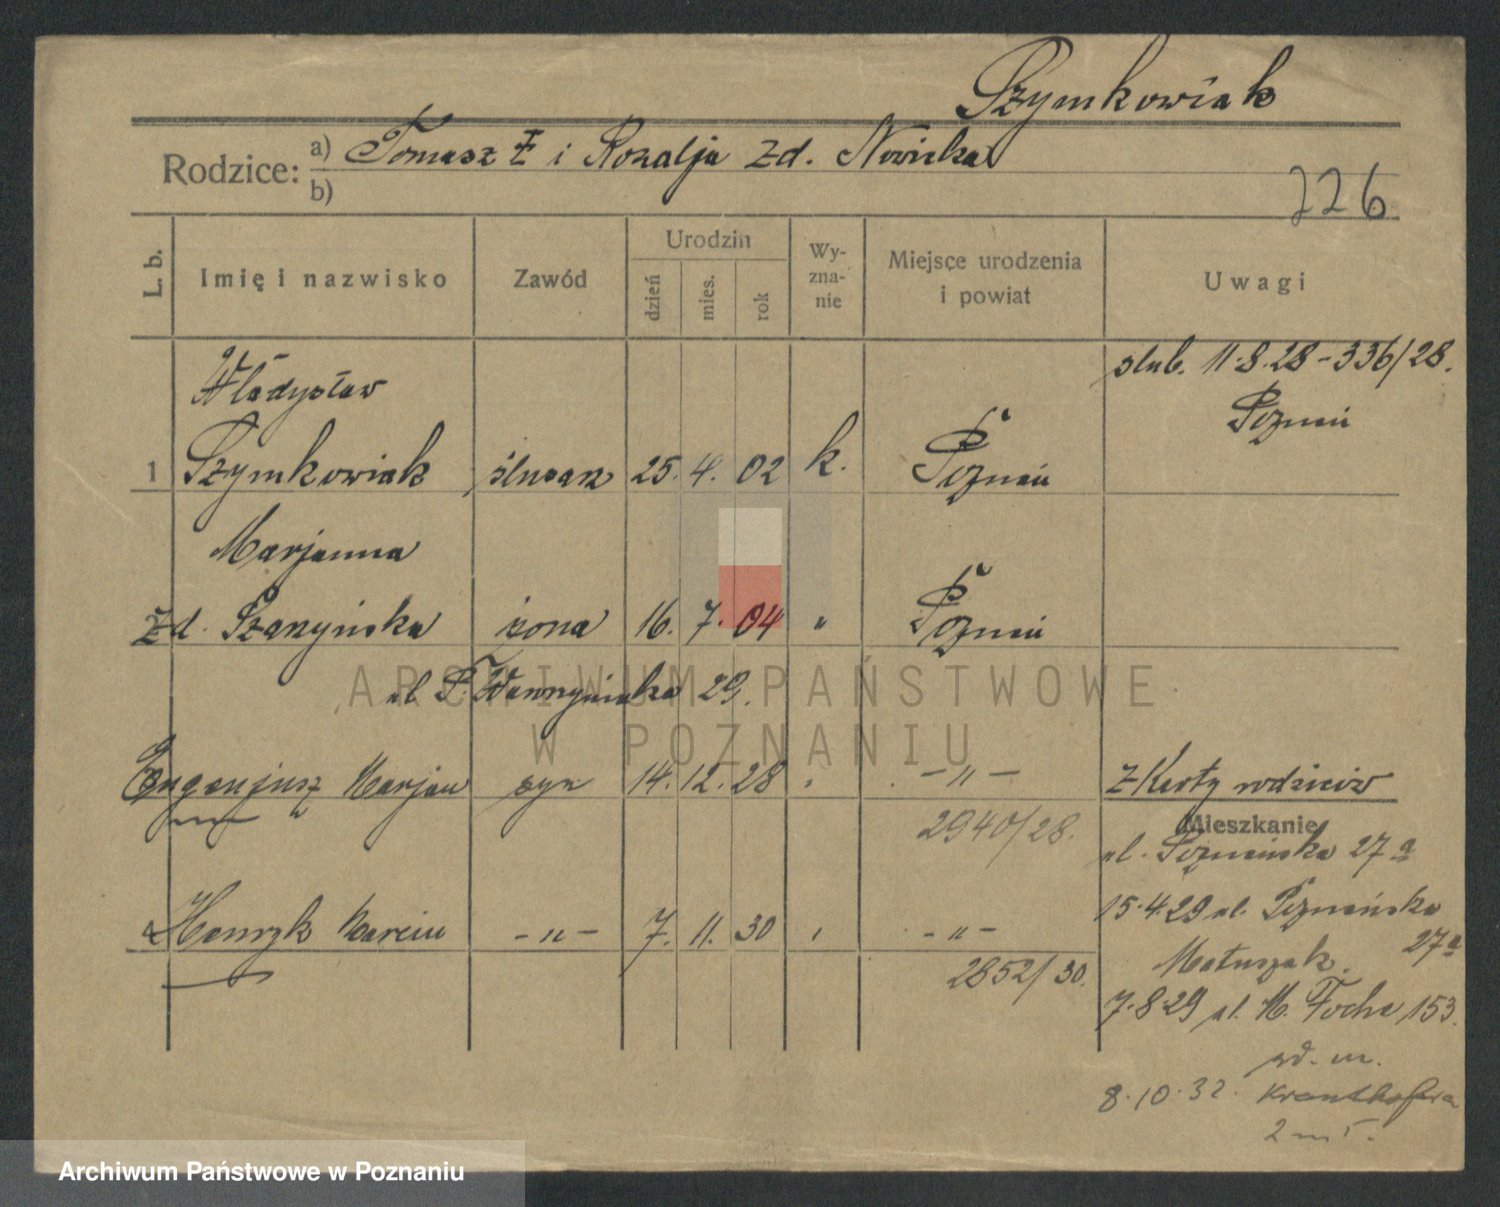 Szymkowiak
Rodzice: a) Tomasz i Rozalja zd. Nowicka
b)
226
L. b. Imię i nazwisko Zawód Urodzin dzień mies. rok Wyznanie Miejsce urodzenia i powiat Uwagi
Władysław ślub. 11.8.28 - 336/28.
Poznań
1 Szymkowiak ślusarz 25. 4. 02 k. Poznań
Marjanna
zd. Szarzyńska żona 16. 7. 04 " Poznań
ul. Wawrzyniaka 29.
Eugenjusz Marjan syn 14. 12. 28 - " - z Karty rodziców
2940/28. Mieszkanie
ul. Poznańska 27a
15.4.29 ul. Poznańska 27a
Henryk Marcin - " - 7. 11. 30 - " -
Matuszak.
2852/30.
7.8.29 ul. M. Focha 153.
8.10.32. Krauthofera
2 m
ARCHIWUM PAŃSTWOWE
W POZNANIU
Archiwum Państwowe w Poznaniu